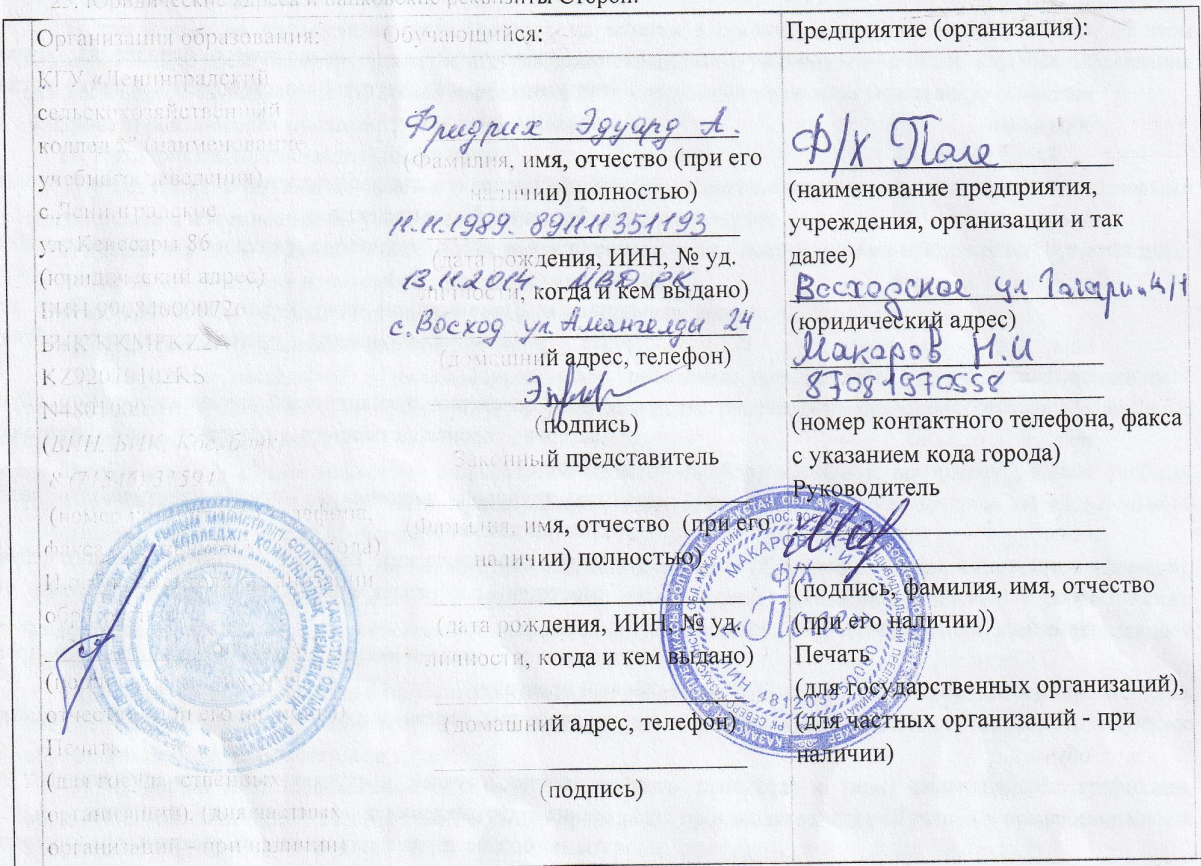 Юридические адреса и банковские реквизиты Сторон:
Организация образования:
КГУ «Ленинградский
сельскохозяйственный
колледж» (наименование
учебного заведения)
с.Ленинградское
ул. Кенесары 86
(юридический адрес)
KZ92070102KS
(БИН, БИК, Код,банк)
(номер
факса
образования
отчество при его наличии)
Печать
(для государственных
организаций), (для частных
организаций - при наличии)
Обучающийся:
Фридрих Эдуард А.
(Фамилия, имя, отчество (при его
наличии) полностью)
11.11.1989. 891111351193
(дата рождения, ИИН, № уд.
личности, когда и кем выдано)
13.11.2014 МВД РК
с.Восход ул Амангелды 24
(домашний адрес, телефон)
(подпись)
Законный представитель
(Фамилия, имя, отчество (при его
наличии) полностью)
(дата рождения, ИИН, № уд.
личности, когда и кем выдано)
(домашний адрес, телефон)
(подпись)
Предприятие (организация):
Ф/Х Поле
(наименование предприятия,
учреждения, организации и так
далее)
Восходское ул
(юридический адрес)
Макаров Н.И
87081970558
(номер контактного телефона, факса
с указанием кода города)
Руководитель
(подпись, фамилия, имя, отчество
(при его наличии))
Печать
(для государственных организаций),
(для частных организаций - при
наличии)
МАКАРОВ
Ф/Х
«Поле»